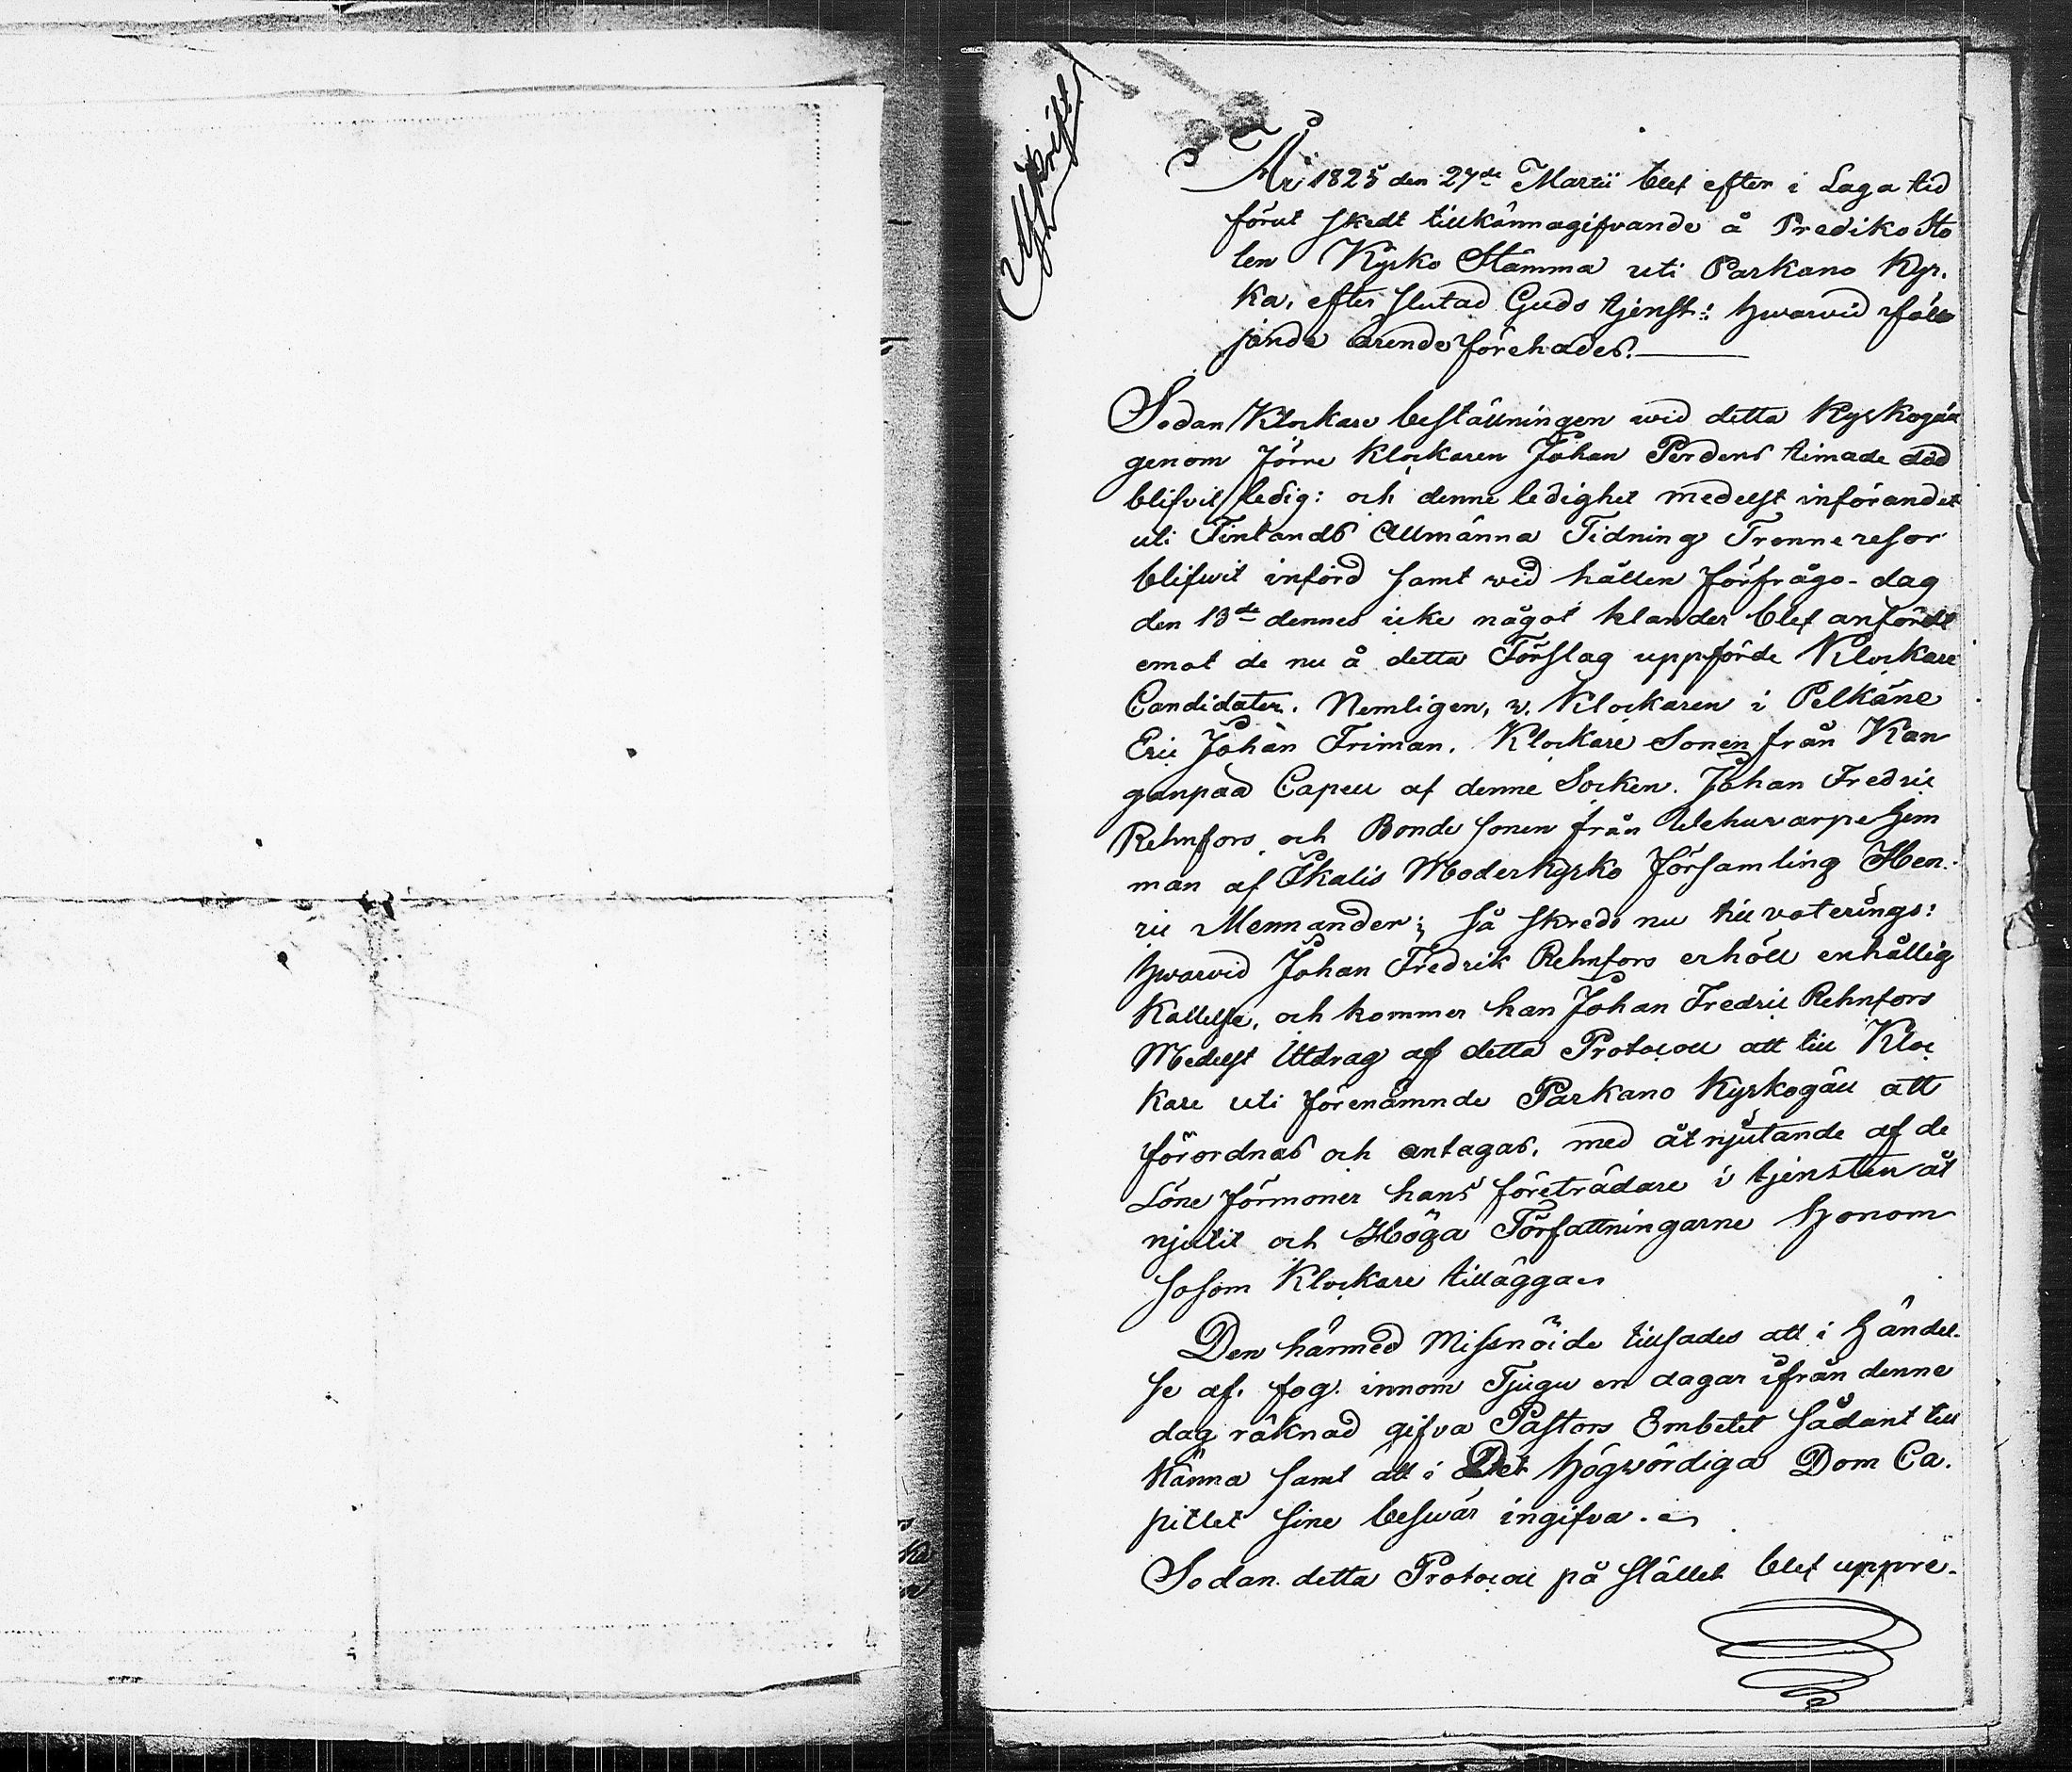 Afskrift
År 1825 den 27de Martii blef efter i Laga tid
förut skedt tillkännagifvande å Prediko Sto
len Kyrko Stämma uti Parkano Kyr,
ka, efter slutad Guds tjenst: hwarvid föll
jande ärende förehades.
Sedan Klockare beställningen wid detta Kyrkogäll
genom förre Klockaren Johan Perdens timade död
blifvit ledig: och denne ledighet medelst införandet
uti Finlands Allmänna Tidning Trenne resor
blifwit införd samt wid hållen förfrågo-dag
den 13de dennes icke något klander blef anfördt
emot de nu å detta Förslag uppförde Klockare
Candidater. Nemligen, v. Klockaren i Pelkäne
Eric Johan Friman, Klockare Sonen från Kan
ganpää Capell af denne Socken. Johan Fredric
Rehnfors och Bonde sonen från Wehuvarpe hem
man af Ikalis Moderkyrko församling Hen-
ric Mennander; så skreds nu till voterings:
hwarvid Johan Fredrik Rehnfors erhöll enhällig
Kallelse, och kommer han Johan Fredric Rehnfors
Medelst Utdrag af detta Protocoll att till Kloc
kare uti förenämnde Parkano Kyrkogäll att
förordnas och antagas, med åtnjutande af de
Löne förmoner hans företrädare i tjensten åt
njutit och Höga Författningarne honom
såsom Klockare tillägga
Den härmed Missnöide tillsades att i händel-
se af, fog. innom Tjugu en dagar ifrån denne
dag räknad gifva Pastors Embetet sådant till
känna samt att i Det högwördiga Dom Ca.
pitlet sine beswär ingifva.
Sedan detta Protocoll på stället blef uppre-